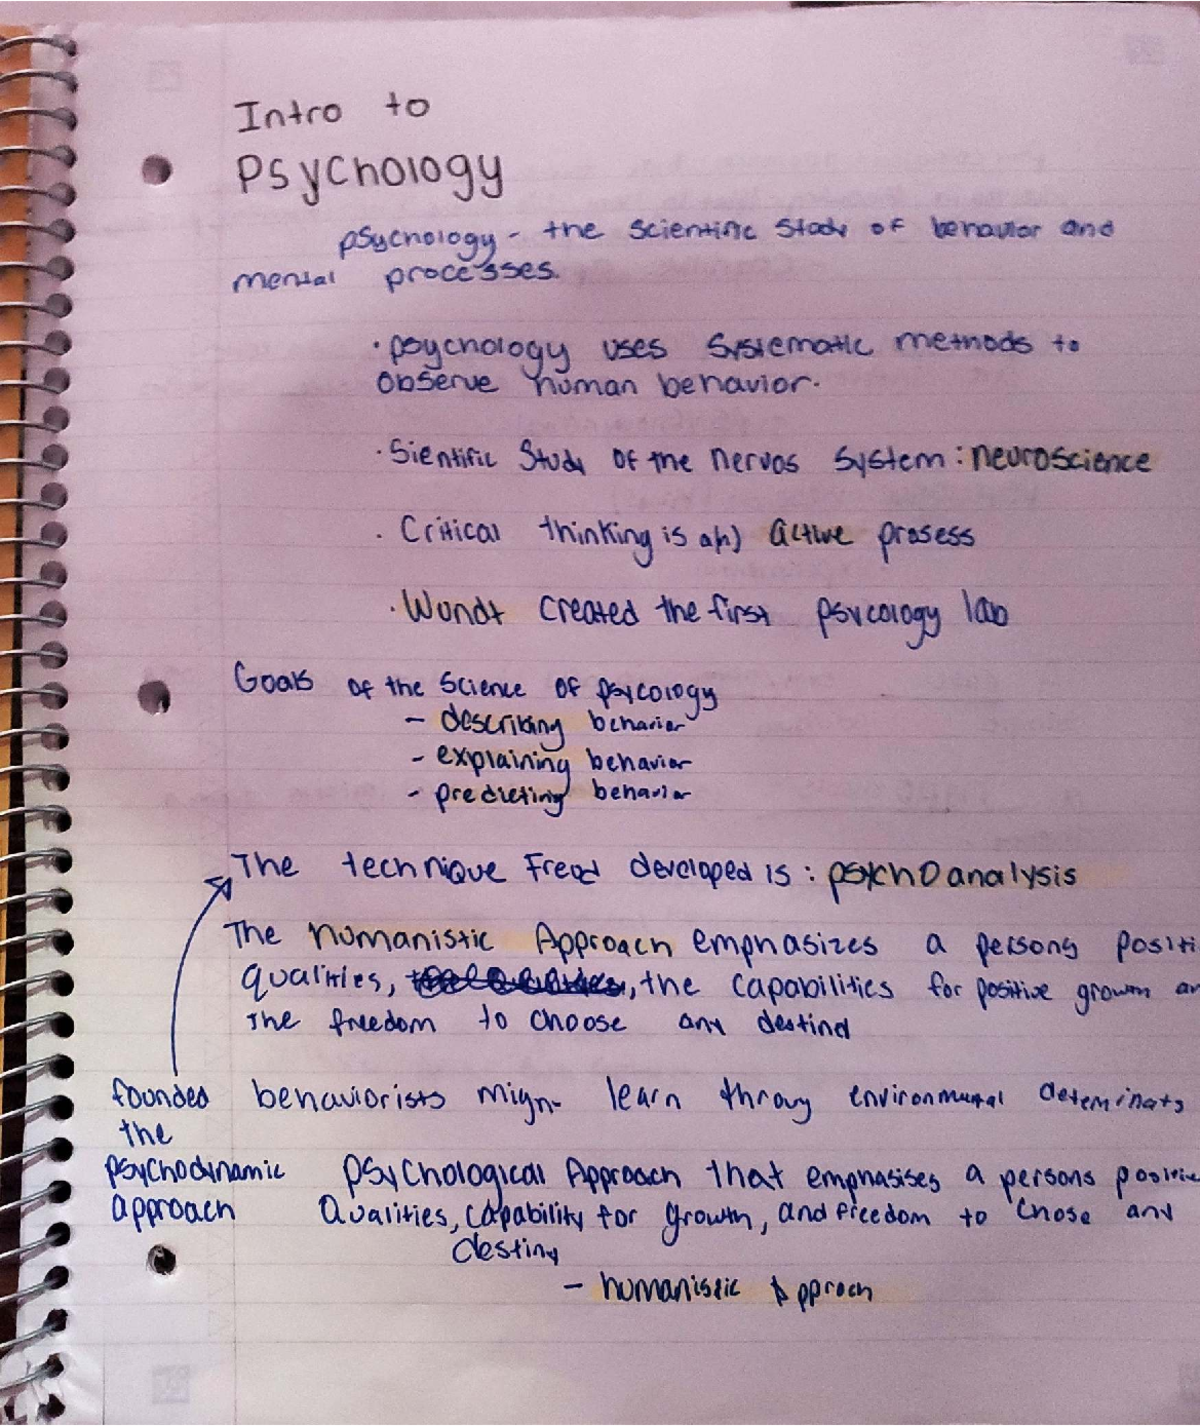 Intro to
Psychology
psychology - the scientific study of behavior and
mental processes.
· psychology uses systematic methods to
observe human behavior.
· Sientific Study of the nervos system : neuroscience
· Critical thinking is a(n) active prosess
· Wundt created the first psycology lab
Goals of the science of psycology
- describing behavior
- explaining behavior
- predicting behavior
The technique Freud developed is : psychoanalysis
The humanistic Approach emphasizes a persons positi
qualities, , the capabilities for positive growth an
The freedom to choose any
founded
the
psychodynamic
approach
behaviorists learn environmental
psychological Approach that emphasises a persons positive
Qualities, capability for growth, and freedom to chose any
destiny
- humanistic Approch